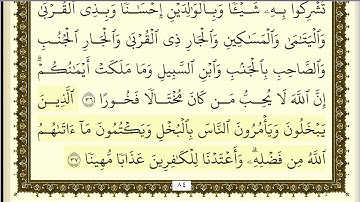 تُشْرِكُوا۟ بِهِۦ شَيْـًٔا ۖ وَبِٱلْوَٰلِدَيْنِ إِحْسَـٰنًا وَبِذِى ٱلْقُرْبَىٰ
وَٱلْيَتَـٰمَىٰ وَٱلْمَسَـٰكِينِ وَٱلْجَارِ ذِى ٱلْقُرْبَىٰ وَٱلْجَارِ ٱلْجُنُبِ
وَٱلصَّاحِبِ بِٱلْجَنۢبِ وَٱبْنِ ٱلسَّبِيلِ وَمَا مَلَكَتْ أَيْمَـٰنُكُمْ ۗ
إِنَّ ٱللَّهَ لَا يُحِبُّ مَن كَانَ مُخْتَالًا فَخُورًا ٣٦ ٱلَّذِينَ
يَبْخَلُونَ وَيَأْمُرُونَ ٱلنَّاسَ بِٱلْبُخْلِ وَيَكْتُمُونَ مَآ ءَاتَىٰهُمُ
ٱللَّهُ مِن فَضْلِهِۦ ۗ وَأَعْتَدْنَا لِلْكَـٰفِرِينَ عَذَابًا مُّهِينًا ٣٧
٨٤